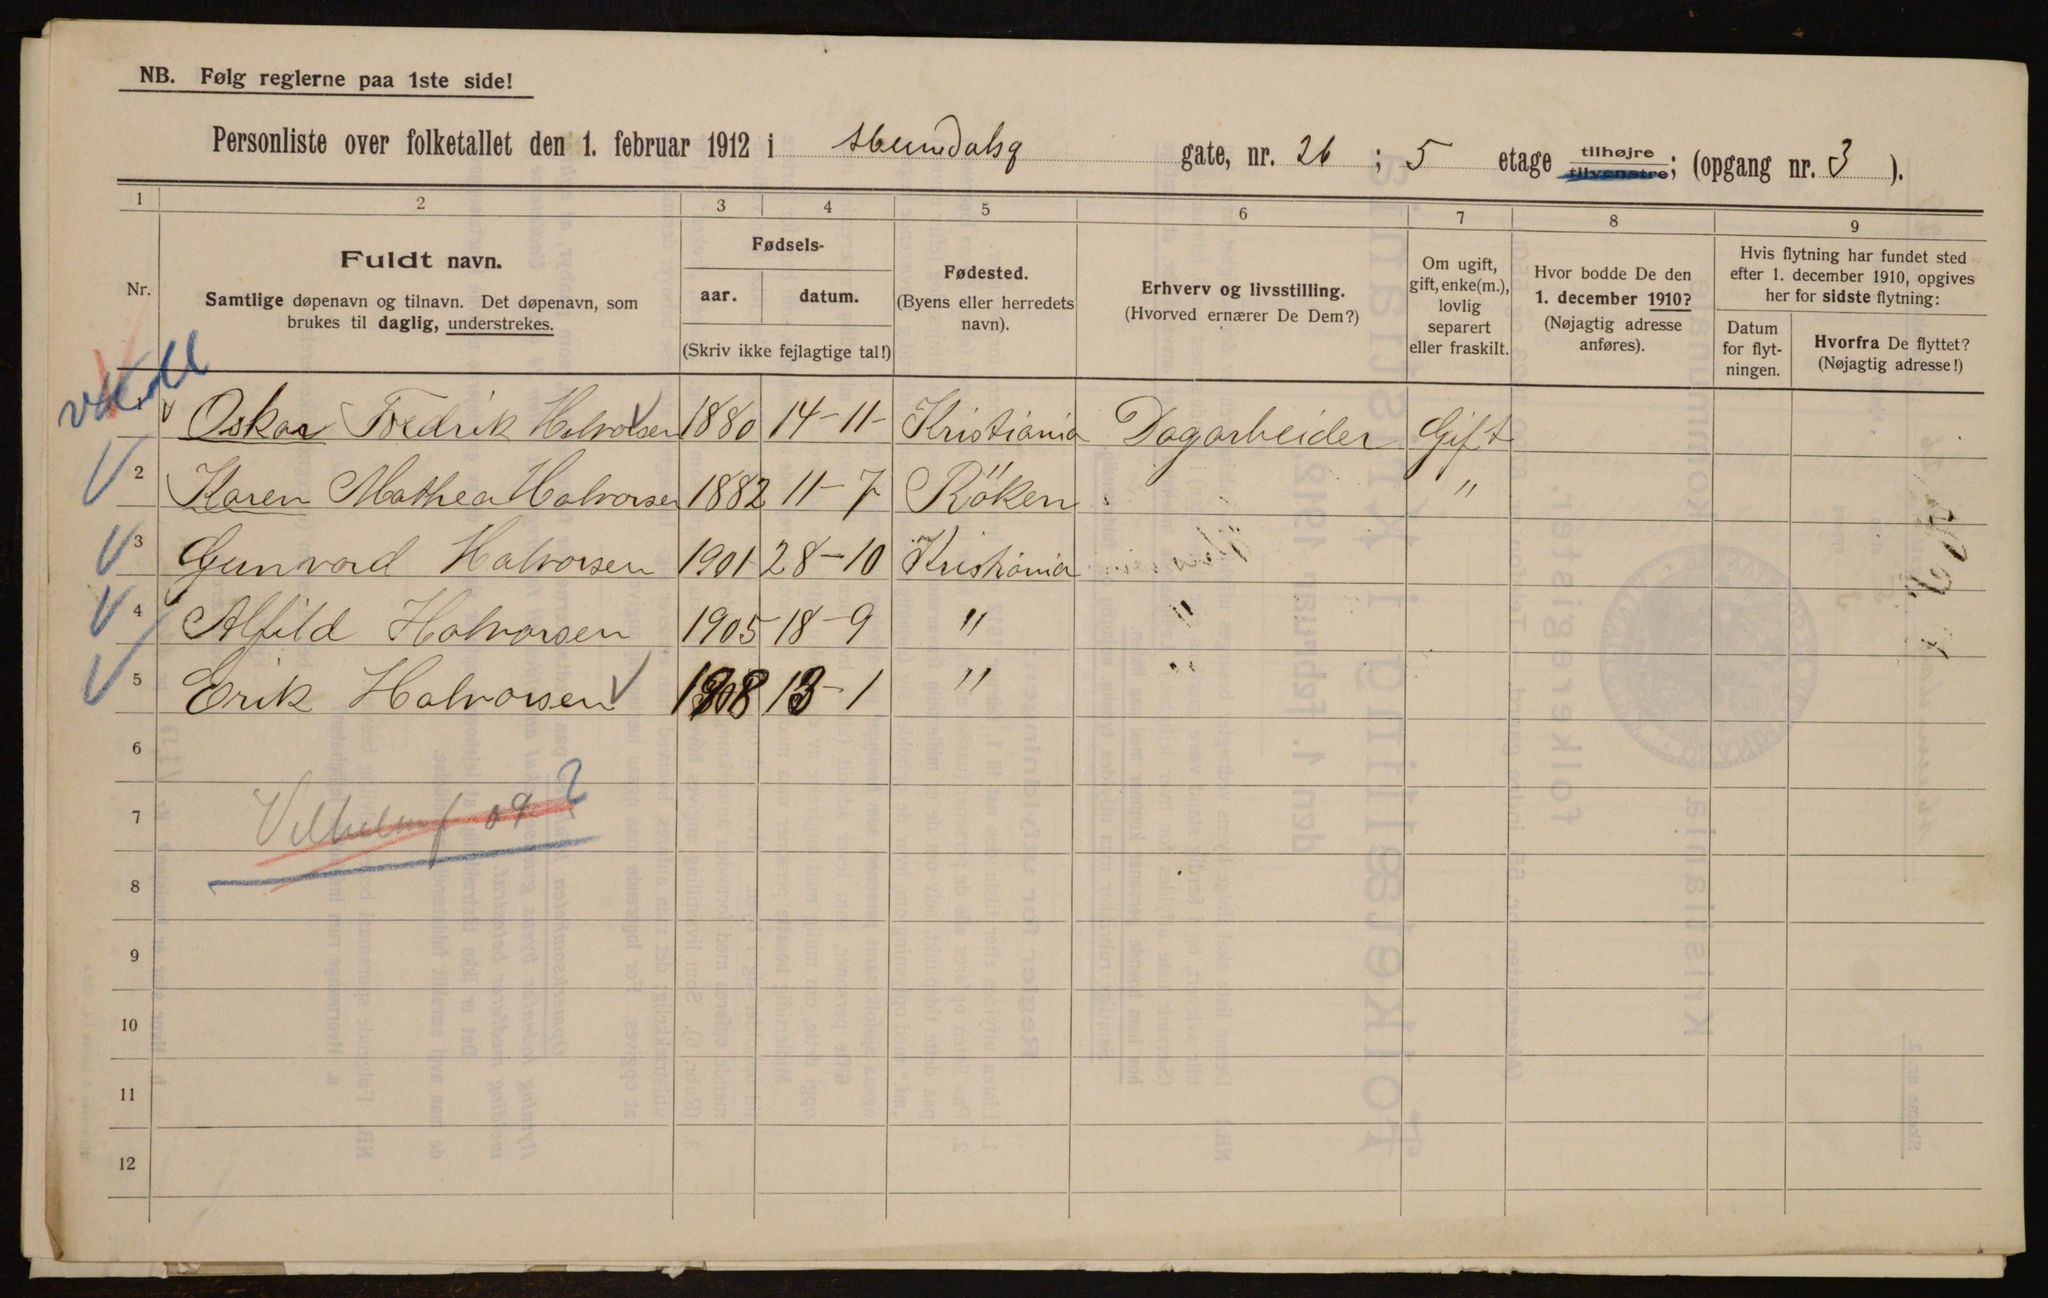 NB. Følg reglerne paa 1ste side!
Personliste over folketallet den 1. februar 1912 i gate, nr. 26 ; 5 etage tilhøjre tilvenstre; (opgang nr. 3 ).
1 2 3 4 5 6 7 8 9
Nr.
Fuldt navn.
Samtlige døpenavn og tilnavn. Det døpenavn, som
brukes til daglig, understrekes.
Fødsels-
aar. datum.
(Skriv ikke fejlagtige tal!)
Fødested.
(Byens eller herredets
navn).
Erhverv og livsstilling.
(Hvorved ernærer De Dem?)
Om ugift,
gift, enke(m.),
lovlig
separert
eller fraskilt.
Hvor bodde De den
1. december 1910?
(Nøjagtig adresse
anføres).
Hvis flytning har fundet sted
efter 1. december 1910, opgives
her for sidste flytning:
Datum
for flyt-
ningen.
Hvorfra De flyttet?
(Nøjagtig adresse!)
Oskar Fredrik Halvorsen 1880 14-11- Kristiania Dagarbeider Gift
2 Karen Mathea Halvorsen 1882 11-7 Röken "
3 Gunvord Halvorsen 1901 28-10 Kristiania
4 Alfild Halvorsen 1905 18-9 "
5 Erik Halvorsen 1908 13-1 "
6
7 09 ?
8
9
10
11
12